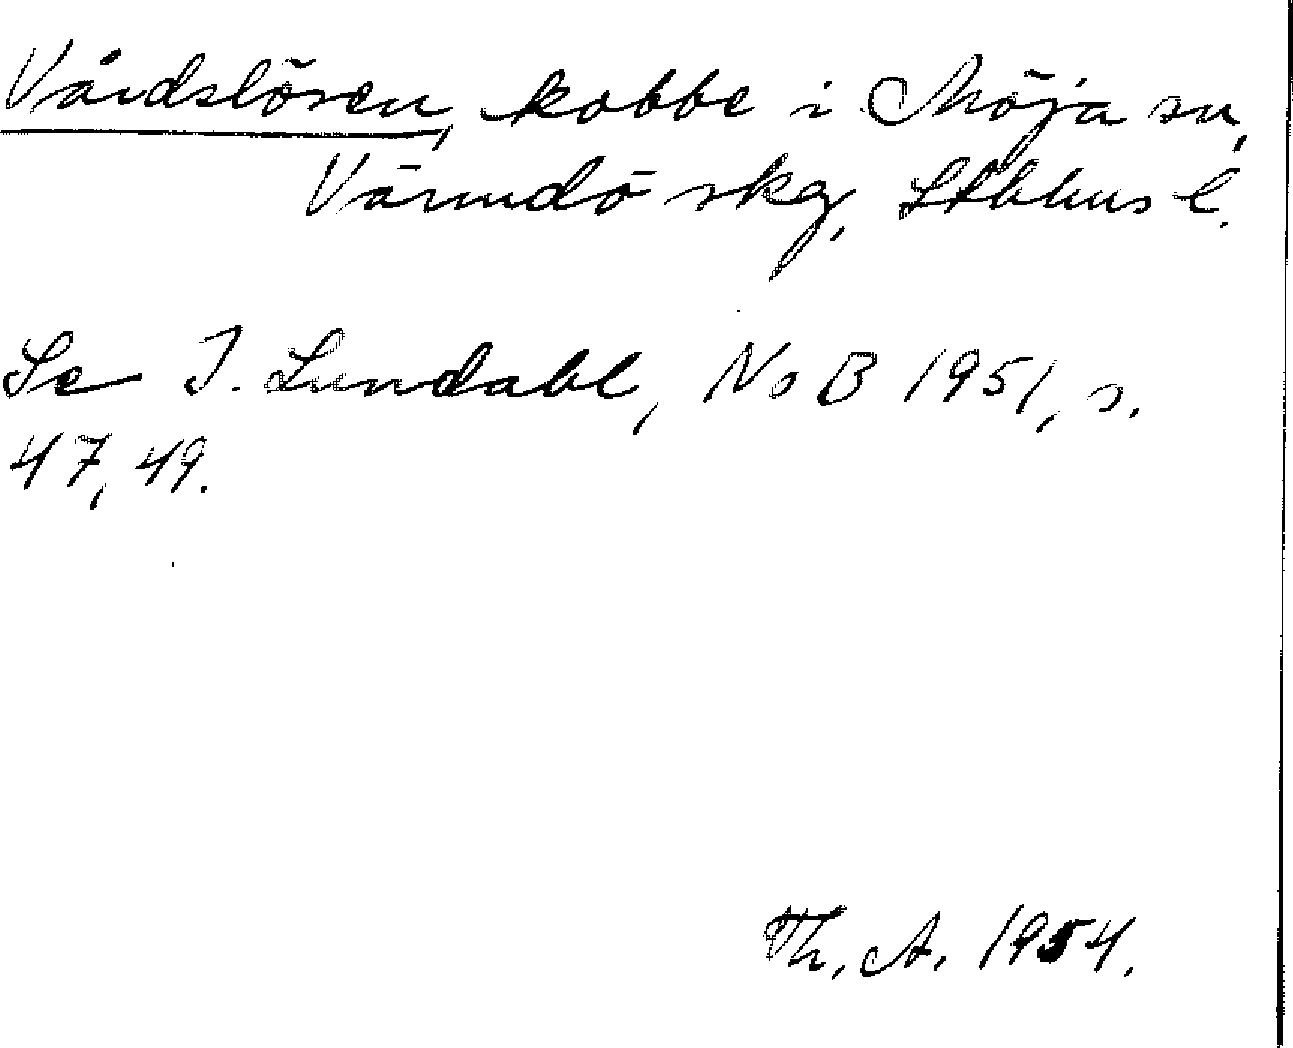 Vårdslören, kobbe i Möja sn,
Värmdö skg, Sthlms l.
Se I. Lundahl, NoB 1951, s.
47, 49.
Th. A. 1954.